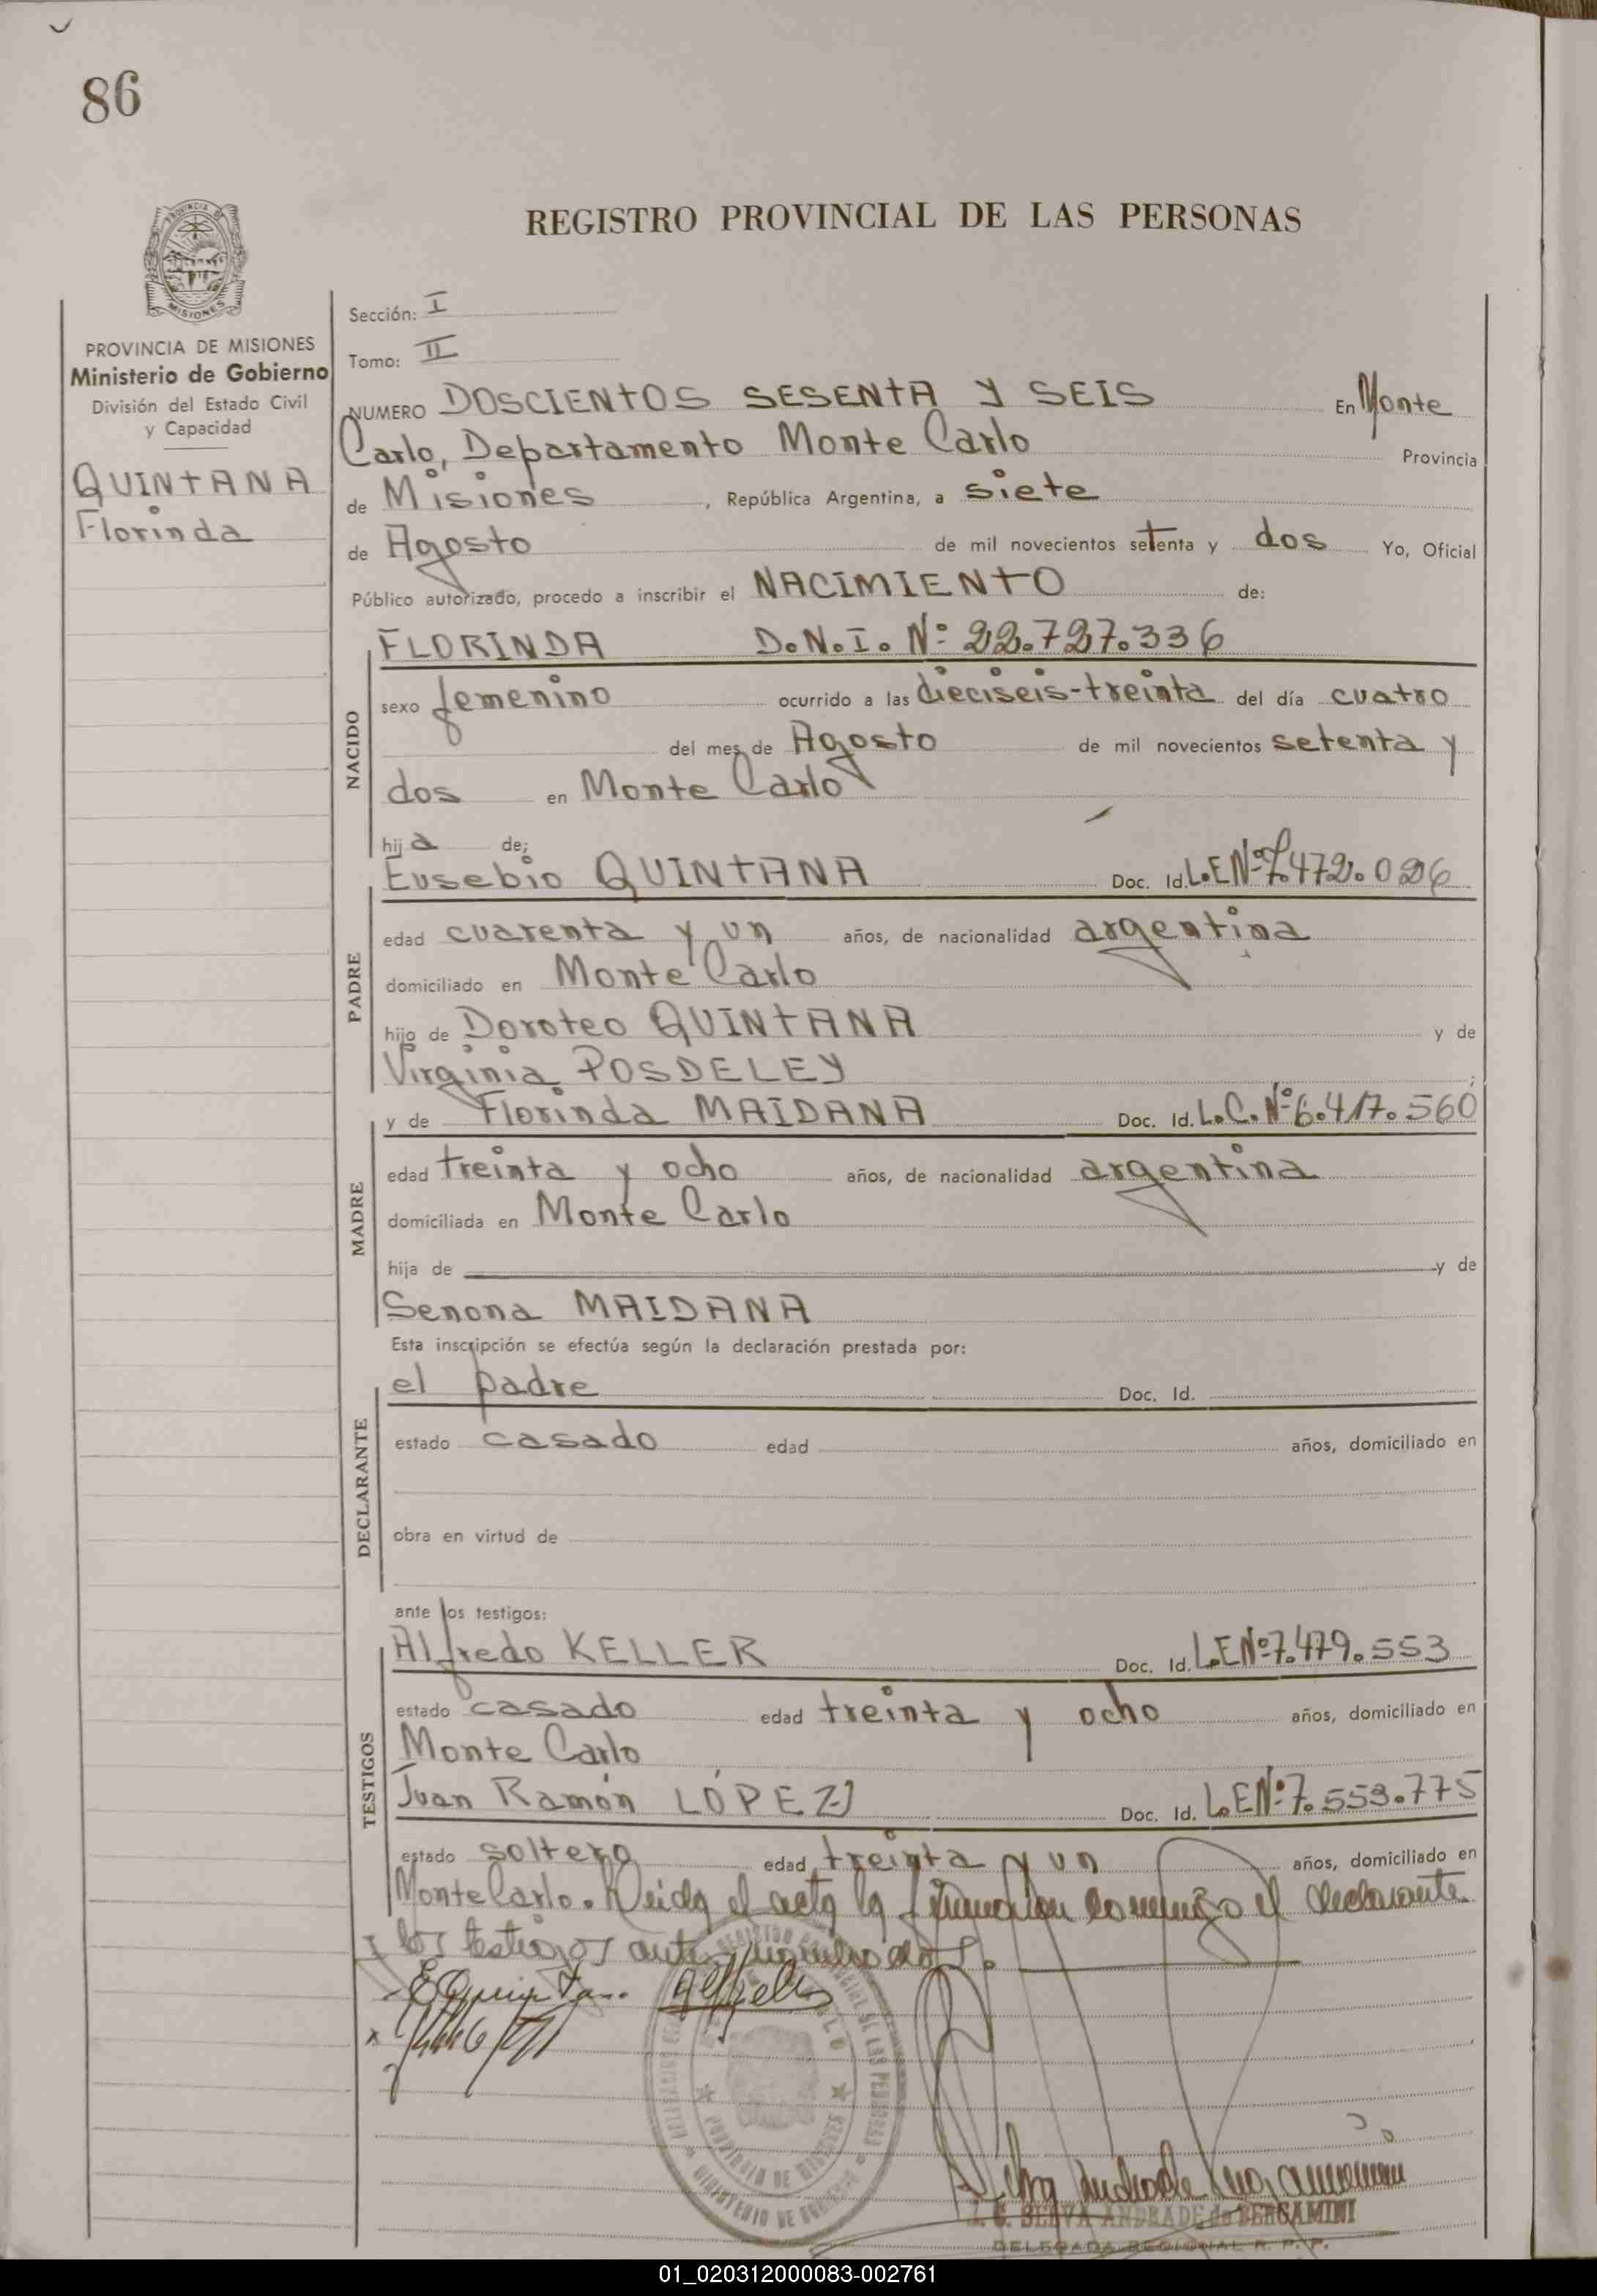 86
REGISTRO PROVINCIAL DE LAS PERSONAS
PROVINCIA DE MISIONES
Ministerio de Gobierno
División del Estado Civil
y Capacidad
QUINTANA
Florinda
Sección: I
Tomo: II
NUMERO DOSCIENTOS SESENTA Y SEIS En Monte
Carlo, Departamento Monte Carlo Provincia
de Misiones, República Argentina, a siete
de Agosto de mil novecientos setenta y dos Yo, Oficial
Público autorizado, procedo a inscribir el NACIMIENTO de:
NACIDO
FLORINDA D.N.I. Nº 22.727.336
sexo femenino ocurrido a las dieciseis-treinta del día cuatro
del mes de Agosto de mil novecientos setenta y
dos en Monte Carlo
hija de;
PADRE
Eusebio QUINTANA Doc. Id. L.E Nº 7.472.026
edad cuarenta y un años, de nacionalidad argentina
domiciliado en Monte Carlo
hijo de Doroteo QUINTANA y de
Virginia POSDELEY ;
MADRE
y de Florinda MAIDANA Doc. Id. L.C. Nº 6.417.560
edad treinta y ocho años, de nacionalidad argentina
domiciliada en Monte Carlo
hija de y de
Senona MAIDANA
Esta inscripción se efectúa según la declaración prestada por:
DECLARANTE
el padre Doc. Id.
estado casado edad años, domiciliado en
obra en virtud de
ante los testigos:
TESTIGOS
Alfredo KELLER Doc. Id. L.E Nº 7.479.553
estado casado edad treinta y ocho años, domiciliado en
Monte Carlo
Juan Ramón LÓPEZ Doc. Id. L.E Nº 7.553.775
estado soltero edad treinta y un años, domiciliado en
Monte Carlo. Leida el acta la firman con conmigo el declarante
y los testigos
E Quintana
SELVA ANDRADE de BERGAMINI
DELEGADA REGIONAL R. P. P.
01_020312000083-002761